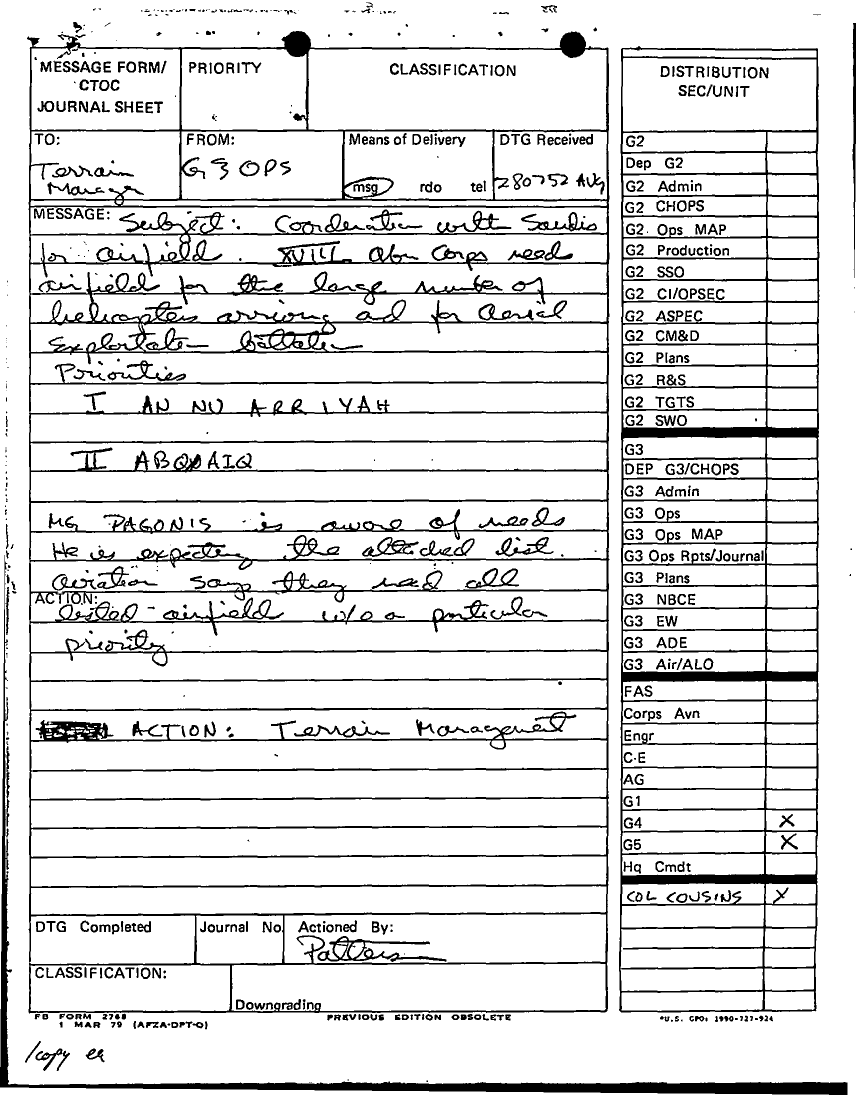 MESSAGE FORM/
CTOC
JOURNAL SHEET
PRIORITY
CLASSIFICATION
TO:
Terrain
Manager
FROM:
G3 OPS
Means of Delivery
msg rdo tel
DTG Received
280752 AUG
MESSAGE: Subject: Coordenation with Saudis
for airfield. XVIII abn Corps need
airfield for the large number of
helicopters arriving and for Aerial
Exploitaten battalen
Priorities
I AN NU ARRIYAH
II ABQAIQ
MG PAGONIS is aware of needs
He is expecting the attached list.
aviation says they need all
ACTION:
listed airfield w/o a particular
priority
ACTION: Terrain Management
DTG Completed
Journal No.
Actioned By:
CLASSIFICATION:
Downgrading
FB FORM 2768
1 MAR 79 (AFZA-DPT-O)
PREVIOUS EDITION OBSOLETE
/copy
DISTRIBUTION
SEC/UNIT
G2
Dep G2
G2 Admin
G2 CHOPS
G2 Ops MAP
G2 Production
G2 SSO
G2 CI/OPSEC
G2 ASPEC
G2 CM&D
G2 Plans
G2 R&S
G2 TGTS
G2 SWO
G3
DEP G3/CHOPS
G3 Admin
G3 Ops
G3 Ops MAP
G3 Ops Rpts/Journal
G3 Plans
G3 NBCE
G3 EW
G3 ADE
G3 Air/ALO
FAS
Corps Avn
Engr
C-E
AG
G1
G4 X
G5 X
Hq Cmdt
COL COUSINS X
*U.S. GPO: 1990-727-924